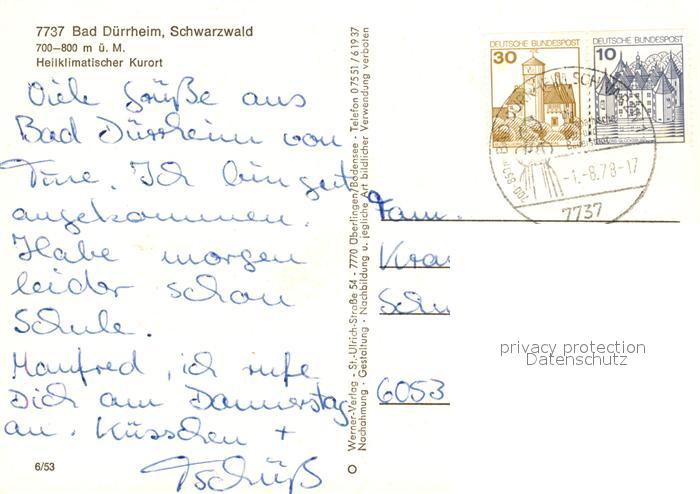 7737 Bad Dürrheim, Schwarzwald
700–800 m ü. M.
Heilklimatischer Kurort
Viele Grüße aus
Bad Dürrheim von
Tine. Ich bin gut
angekommen.
Habe morgen
leider schon
Schule.
Manfred, ich rufe
Dich am Donnerstag
an. Küsschen +
Tschüß
6/53
Werner-Verlag · St.-Ulrich-Straße 54 · 7770 Überlingen/Bodensee · Telefon 07551/61937
Nachahmung · Gestaltung · Nachbildung u. jegliche Art bildlicher Verwendung verboten
30 DEUTSCHE BUNDESPOST
10 DEUTSCHE BUNDESPOST
-1.-8.78-17
7737
Fam.
Kra
Schu
6053
privacy protection
Datenschutz